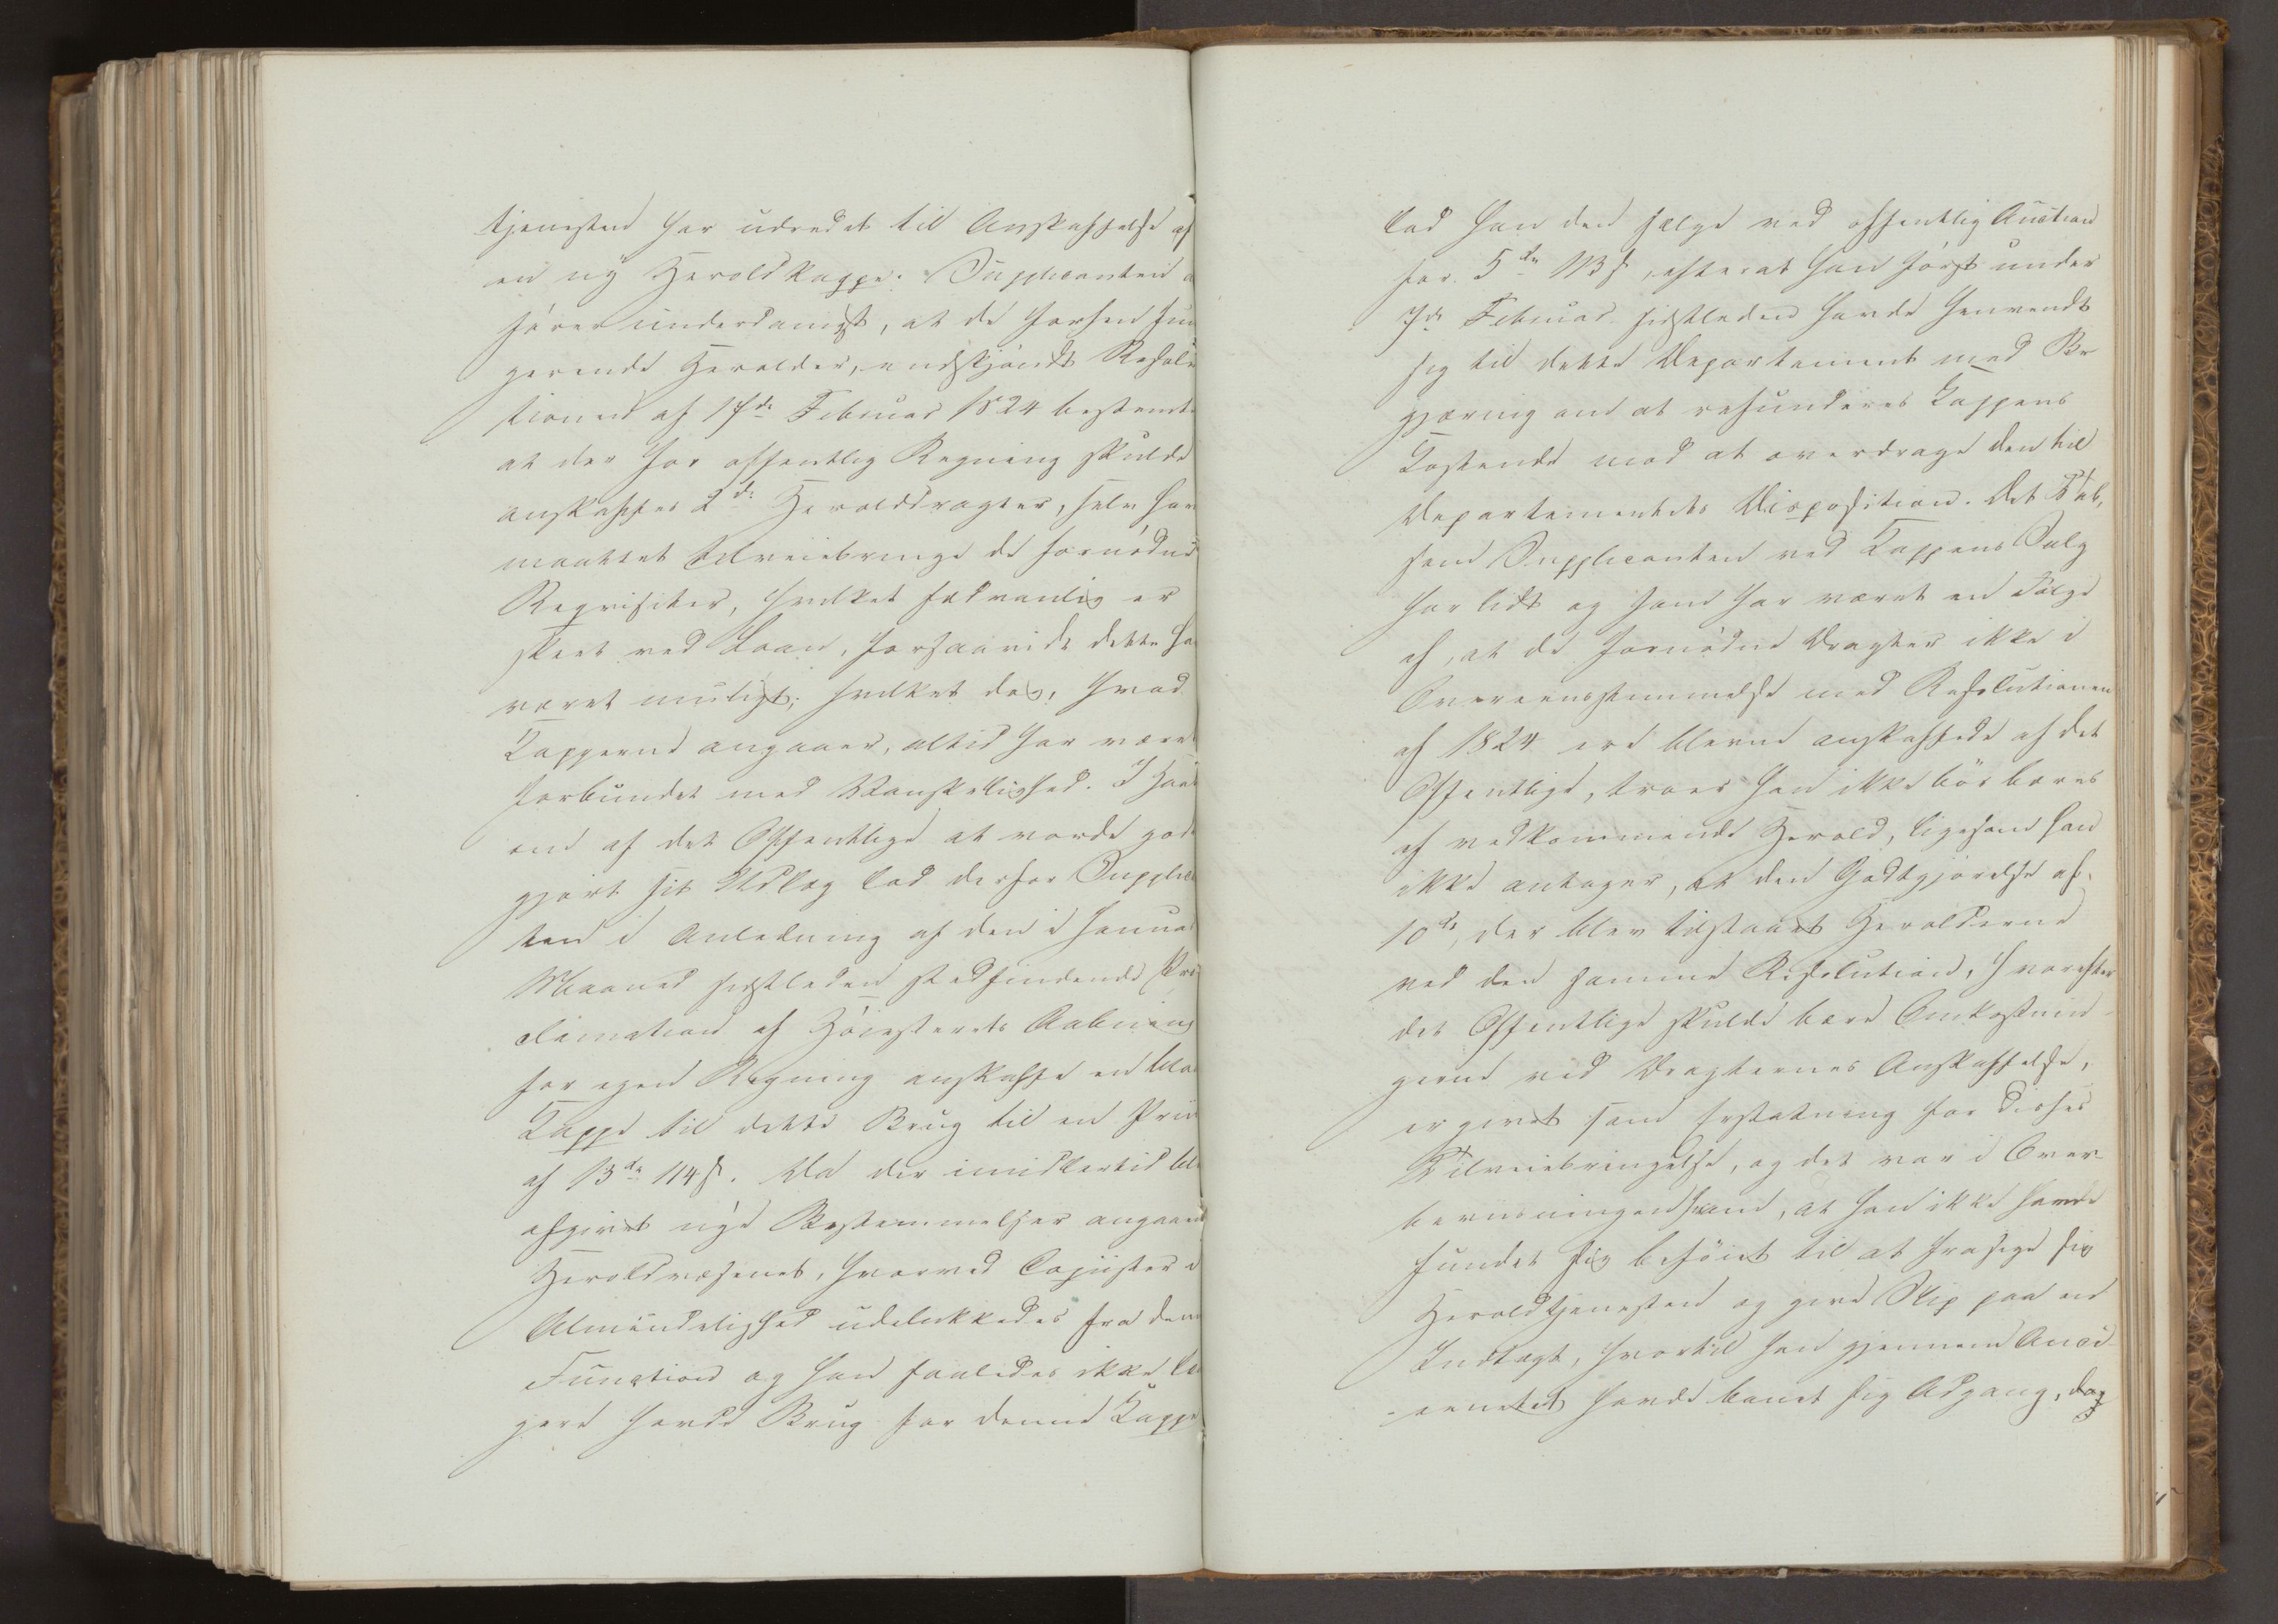 tjenesten har udredet til Anskaffelse af
en ny Heroldkappe. Supplicanten a
fører underdanigst, at de forhen fun
gerende Herolder, endskjøndt Resolu
tionen af 17de Februar 1824 bestemte
at der for offentlig Regning skulde
anskaffes 2de Herolddragter, selv har
maattet tilveiebringe de fornødne
Reqvisiter, hvilket sædvanlig er
skeet ved Laan, forsaavidt dette ha
været muligt; hvilket dog, hvad
Kapperne angaaer, altid har været
forbundet med Vanskelighed. I Haab
om af det Offentlige at vorde godt
gjort sit Udlæg lod derfor Supplica
ten i Anledning af den i Januar
Maaned sidstleden stedfindende Pro
clamation af Høiesterets Aabning
for egen Regning anskaffe en blaa
Kappe til dette Brug til en Priis
af 13 dr 114 s. Da der imidlertid ble
afgivet nye Bestemmelser angaaen
Heroldvæsenet, hvorved Copiister i
Almindelighed udelukkedes fra denn
Function og han saaledes ikke læ
gere havde Brug for denne Kappe
lod han den sælge ved offentlig Auction
for 5 dr 113 s, efterat han først under
7de Februar sidstleden havde henvendt
sig til dette Departement med Be
gjæring om at refunderes Kappens
Kostende mod at overdrage den til
Departementets Disposition. Det Tab,
som Supplicanten ved Kappens Salg
har lidt og som har været en Følge
af, at de fornødne Dragter ikke i
Overeensstemmelse med Resolutionen
af 1824 ere blevne anskaffede af det
Offentlige, troer han ikke bør bæres
af vedkommende Herold, ligesom han
ikke antager, at den Godtgjørelse af
10 dr, der blev tilstaaet Herolderne
ved den samme Resolution, hvorefter
det Offentlige skulde bære Omkostnin-
gerne ved Dragternes Anskaffelse,
er givet som Erstatning for disses
Tilveiebringelse, og det var i Over-
beviisningen herom, at han ikke havde
fundet sig beføiet til at frasige sig
Heroldtjenesten og give Slip paa en
Indtægt, hvortil han gjennem Anci-
-ennetet havde banet sig Adgang, dog